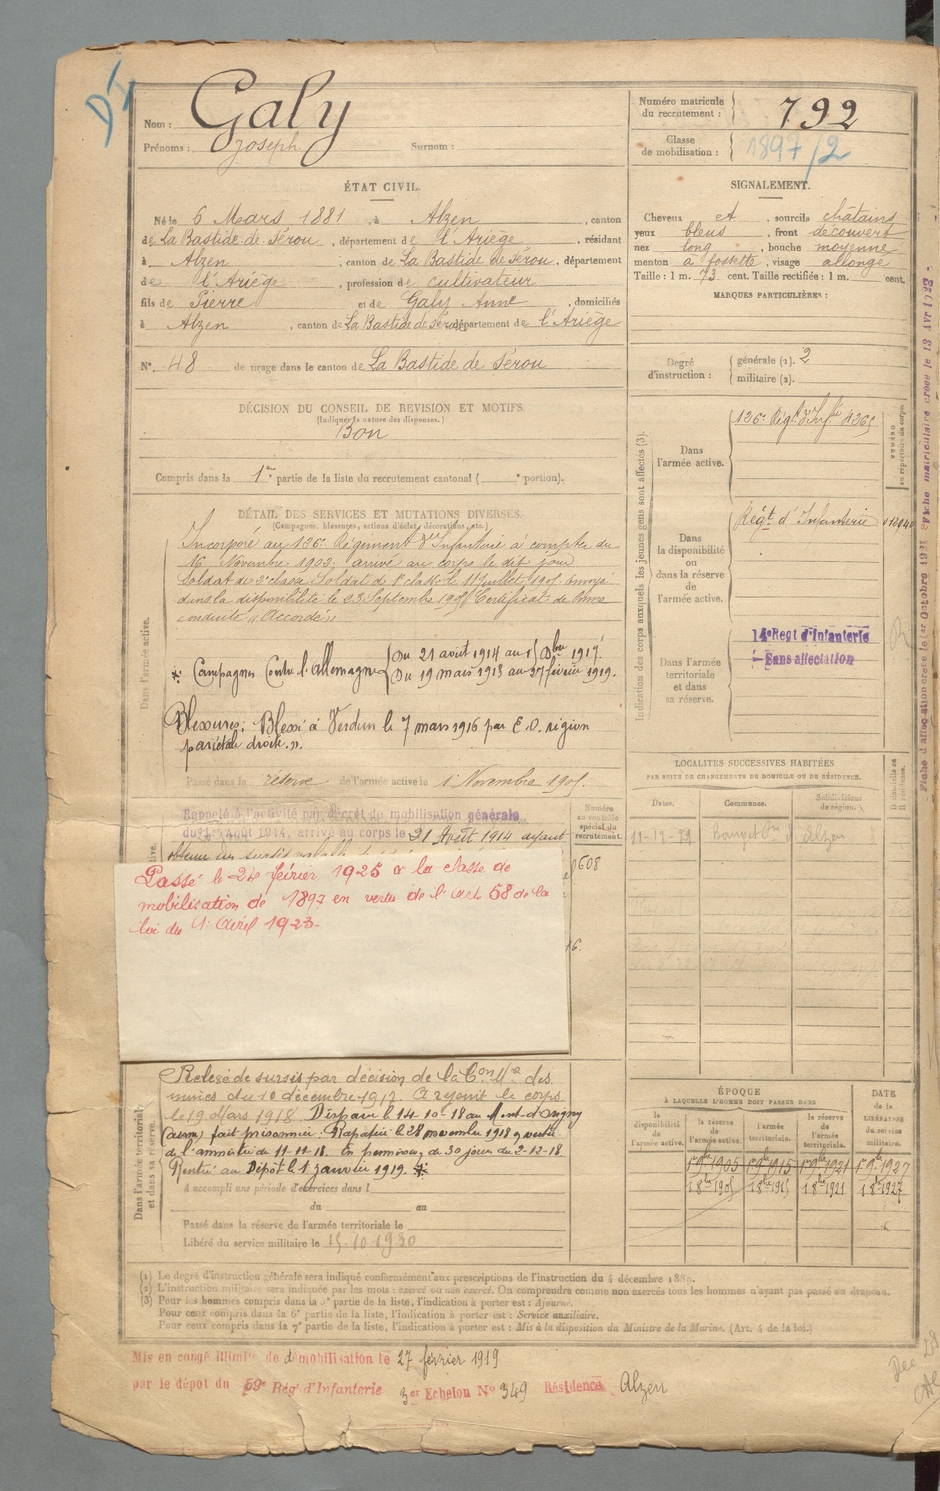 Nom : Galy
Prénoms : Joseph Surnom :
Numéro matricule du recrutement : 792
Classe de mobilisation : 1897/2
ÉTAT CIVIL.
Né le 6 Mars 1881, à Alzen, canton
de La Bastide de Sérou, département de l'Ariège, résidant
à Alzen, canton de La Bastide de Sérou, département
de l'Ariège, profession de cultivateur
fils de Pierre et de Galy Anne, domiciliés
à Alzen, canton de La Bastide de Sérou département de l'Ariège
N° 48 de tirage dans le canton de La Bastide de Sérou
SIGNALEMENT.
Cheveux et, sourcils châtains
yeux bleus, front découvert
nez long, bouche moyenne
menton à fossette, visage allongé
Taille : 1 m. 73 cent. Taille rectifiée : 1 m. cent.
MARQUES PARTICULIÈRES :
Degré d'instruction : générale (1). 2
militaire (2).
DÉCISION DU CONSEIL DE REVISION ET MOTIFS.
(Indiquer la nature des dispenses.)
Bon
Compris dans la 1re partie de la liste du recrutement cantonal ( e portion).
DÉTAIL DES SERVICES ET MUTATIONS DIVERSES.
(Campagnes, blessures, actions d'éclat, décorations, etc.)
Dans l'armée active.
Incorporé au 126e Régiment d'Infanterie à compter du
16 Novembre 1903, arrivé au corps le dit jour
Soldat de 2e classe Soldat de 1e classe le 11 Juillet 1905 envoyé
dans la disponibilité le 23 Septembre Certificat de bonne
conduite "Accordé"
Campagnes Contre l'allemagne Du 21 août 1914 au 1917.
Du 19 mars 1918 au 27 février 1919.
Blessures : Blessé à Verdun le 7 mars 1916 par E.O. région
pariétale droite.
Passé dans la réserve de l'armée active le 1 Novembre
Rappelé à l'activité par décret de mobilisation générale
du 1er Août 1914, arrivé au corps le 21 Août 1914 ayant
obtenu un sursis
Passé le 24 février 1925 à la classe de
mobilisation de 1897 en vertu de l'art 58 de la
loi du 1 Avril 1923.
Numéro au contrôle spécial du recrutement.
608
16.
Dans l'armée territoriale et dans sa réserve.
Relevé de sursis par décision de la des
mines du 10 décembre 1917. A rejoint le corps
le 19 Mars 1918. Disparu le 14-10-18 au Mont-d'Origny
(aisne) fait prisonnier. Rapatrié le 28 novembre 1918
de l'armistice du 11-11-18. En permission de 30 jours du 2-12-18
Rentré au Dépôt le 1 janvier 1919.
A accompli une période d'exercices dans l
du au
Passé dans la réserve de l'armée territoriale le
Libéré du service militaire le 15-10-1930
Indication des corps auxquels les jeunes gens sont affectés (3).
Dans l'armée active.
126e Régt d'Infie
NUMÉRO au répertoire du corps.
Dans la disponibilité ou dans la réserve de l'armée active.
Régt d'Infanterie
Dans l'armée territoriale et dans sa réserve.
14e Regt d'Infanterie
Sans affectation
LOCALITÉS SUCCESSIVES HABITÉES
PAR SUITE DE CHANGEMENTS DE DOMICILE OU DE RÉSIDENCE.
Dates. Communes. Subdivisions de région. D domicile ou R résidence.
ÉPOQUE
À LAQUELLE L'HOMME DOIT PASSER DANS
la disponibilité de l'armée active. la réserve de l'armée active. l'armée territoriale. la réserve de l'armée territoriale.
DATE de la LIBÉRATION du service militaire.
(1) Le degré d'instruction générale sera indiqué conformément aux prescriptions de l'instruction du 4 décembre 1889.
(2) L'instruction militaire sera indiquée par les mots : exercé ou non exercé. On comprendra comme non exercés tous les hommes n'ayant pas passé au drapeau.
(3) Pour les hommes compris dans la 5e partie de la liste, l'indication à porter est : Ajourné.
Pour ceux compris dans la 6e partie de la liste, l'indication à porter est : Service auxiliaire.
Pour ceux compris dans la 7e partie de la liste, l'indication à porter est : Mis à la disposition du Ministre de la Marine. (Art. 4 de la loi.)
Mis en congé illimité de démobilisation le 27 février 1919
par le dépôt du 59e Rég' d'Infanterie 3er Echelon N° 349 Résidence Alzen